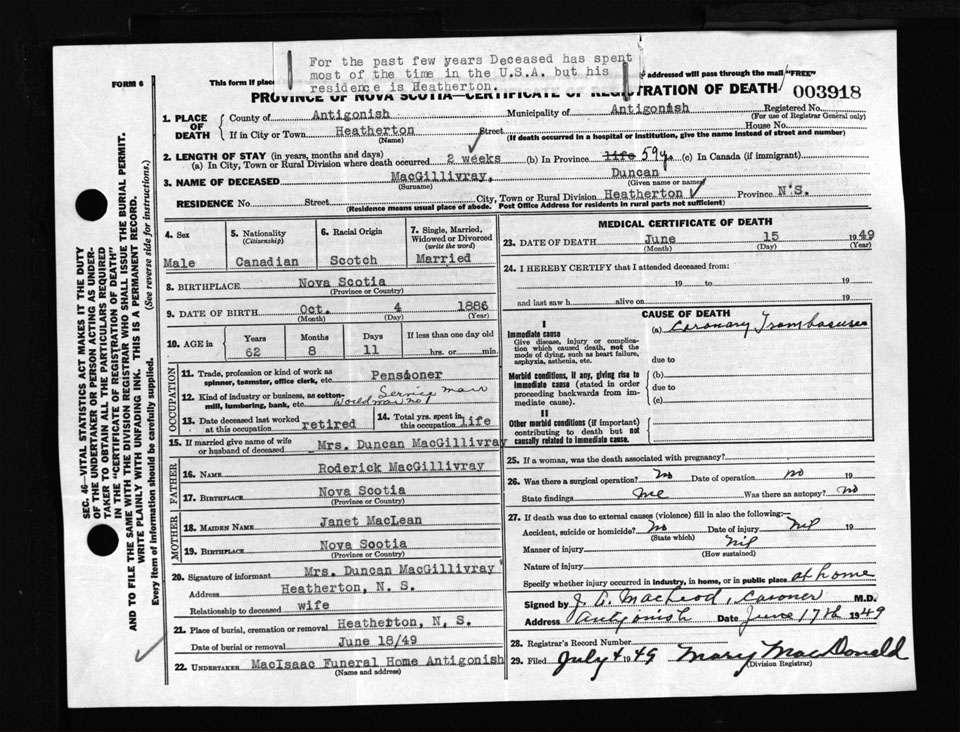 For the past few years Deceased has spent
most of the time in the U.S.A. but his
residence is Heatherton.
FORM 6
This form if place
addressed will pass through the mail "FREE"
PROVINCE OF NOVA SCOTIA—CERTIFICATE OF REGISTRATION OF DEATH
003918
1. PLACE OF DEATH
County of Antigonish Municipality of Antigonish Registered No.
(For use of Registrar General only)
If in City or Town Heatherton Street House No.
(Name) (If death occurred in a hospital or institution, give the name instead of street and number)
2. LENGTH OF STAY (in years, months and days)
(a) In City, Town or Rural Division where death occurred 2 weeks (b) In Province life 59 yrs (c) In Canada (if immigrant)
3. NAME OF DECEASED MacGillivray, Duncan
(Surname) (Given name or names)
RESIDENCE No. Street City, Town or Rural Division Heatherton Province N.S.
(Residence means usual place of abode. Post Office Address for residents in rural parts not sufficient)
4. Sex
Male
5. Nationality
(Citizenship)
Canadian
6. Racial Origin
Scotch
7. Single, Married,
Widowed or Divorced
(write the word)
Married
8. BIRTHPLACE Nova Scotia
(Province or Country)
9. DATE OF BIRTH Oct. 4 1886
(Month) (Day) (Year)
10. AGE in
Years Months Days If less than one day old
62 8 11 hrs. or min.
OCCUPATION
11. Trade, profession or kind of work as
spinner, teamster, office clerk, etc. Pensioner
12. Kind of industry or business, as cotton-
mill, lumbering, bank, etc. Service man
World war no 1
13. Date deceased last worked
at this occupation retired
14. Total yrs. spent in
this occupation life
15. If married give name of wife
or husband of deceased Mrs. Duncan MacGillivray
FATHER
16. NAME Roderick MacGillivray
17. BIRTHPLACE Nova Scotia
(Province or Country)
MOTHER
18. MAIDEN NAME Janet MacLean
19. BIRTHPLACE Nova Scotia
(Province or Country)
20. Signature of informant Mrs. Duncan MacGillivray
Address Heatherton, N. S.
Relationship to deceased wife
21. Place of burial, cremation or removal Heatherton, N. S.
Date of burial or removal June 18/49
22. UNDERTAKER MacIsaac Funeral Home Antigonish
(Name and address)
MEDICAL CERTIFICATE OF DEATH
23. DATE OF DEATH June 15 1949
(Month) (Day) (Year)
24. I HEREBY CERTIFY that I attended deceased from:
19 to 19
and last saw h alive on 19
CAUSE OF DEATH
I
Immediate cause
Give disease, injury or complica-
tion which caused death, not the
mode of dying, such as heart failure,
asphyxia, asthenia, etc.
(a) Coronary Trombosuses
due to
Morbid conditions, if any, giving rise to
immediate cause (stated in order
proceeding backwards from im-
mediate cause).
(b)
due to
(c)
II
Other morbid conditions (if important)
contributing to death but not
causally related to immediate cause.
25. If a woman, was the death associated with pregnancy?
26. Was there a surgical operation? no Date of operation no 19
State findings Was there an autopsy? no
27. If death was due to external causes (violence) fill in also the following:—
Accident, suicide or homicide? no Date of injury nil 19
(State which)
Manner of injury nil
(How sustained)
Nature of injury
Specify whether injury occurred in industry, in home, or in public place at home
Signed by J. A. MacLeod, Coroner M.D.
Address Antigonish Date June 17th 1949
28. Registrar's Record Number
29. Filed July 4 1949 Mary MacDonald
(Division Registrar)
SEC. 46—VITAL STATISTICS ACT MAKES IT THE DUTY
OF THE UNDERTAKER OR PERSON ACTING AS UNDER-
TAKER TO OBTAIN ALL THE PARTICULARS REQUIRED
IN THE "CERTIFICATE OF REGISTRATION OF DEATH"
AND TO FILE THE SAME WITH THE DIVISION REGISTRAR WHO SHALL ISSUE THE BURIAL PERMIT.
WRITE PLAINLY WITH UNFADING INK. THIS IS A PERMANENT RECORD.
Every item of information should be carefully supplied. (See reverse side for instructions.)